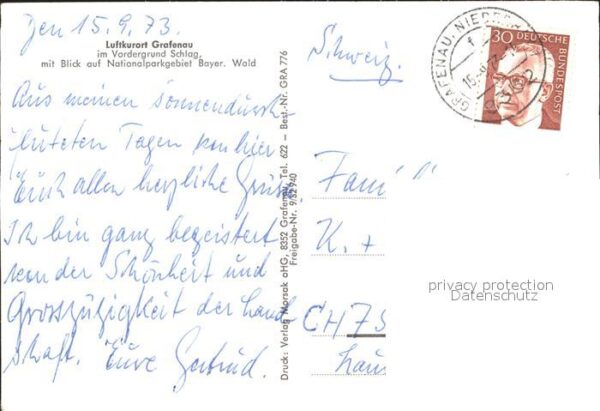 Den 15.9.73.
Luftkurort Grafenau
im Vordergrund Schlag,
mit Blick auf Nationalparkgebiet Bayer. Wald
Aus meinen sonnendurch-
fluteten Tagen von hier
Euch allen herzliche Grüsse
Ich bin ganz begeistert
von der Schönheit und
Grosszügigkeit der Land
schaft. Eure Gertrud.
Druck: Verlag Morsak oHG, 8352 Grafenau, Tel. 622 – Best.-Nr. GRA 776
Freigabe-Nr. 9/32 940
Schweiz.
GRAFENAU, NIEDERB
30 DEUTSCHE
BUNDESPOST
Fami
K. +
CH 75
privacy protection
Datenschutz